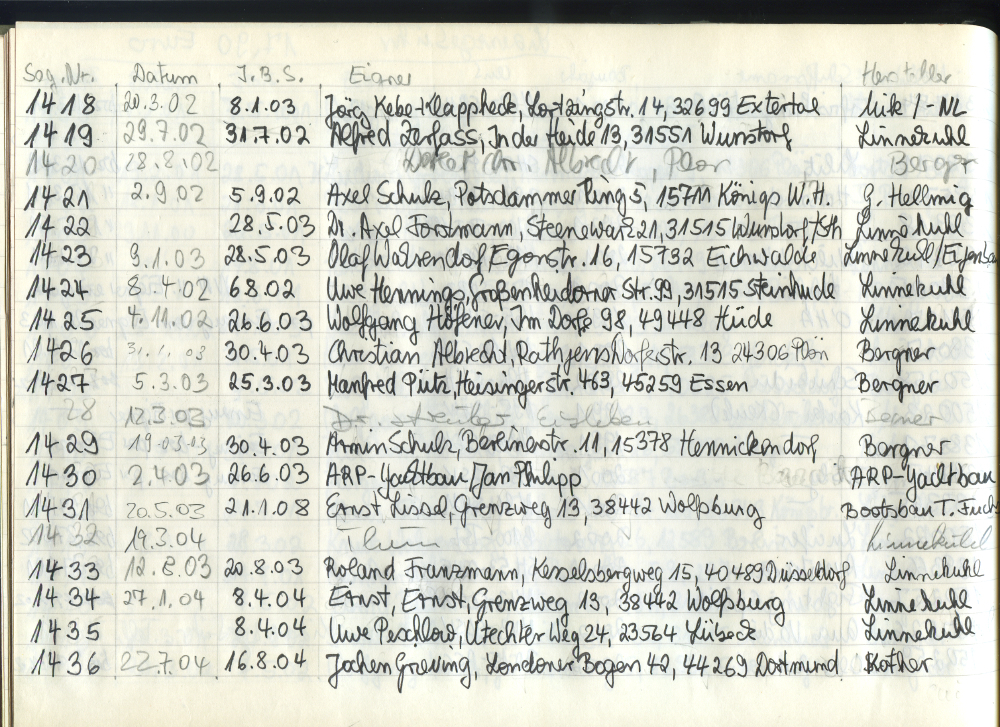 Seg.Nr. Datum I.B.S. Eigner Hersteller
1418 20.3.02 8.1.03 Jörg Kebe-Klapphede, Lortzingstr. 14, 32699 Extertal Mik/-NL
1419 29.7.02 31.7.02 Alfred Zerfass, In der Heide 13, 31551 Wunstorf Linnekuhl
1420 28.8.02 Albrecht, Plön Berger
1421 2.9.02 5.9.02 Axel Schulz, Potsdammer Ring 5, 15711 Königs W.H. G. Hellmig
1422 28.5.03 Dr. Axel Forstmann, Steenewark 21, 31515 Wunstorf/Sth Linnekuhl
1423 9.1.03 28.5.03 Olaf Walrendorf, Egonstr. 16, 15732 Eichwalde Linnekuhl/Eigenbau
1424 8.4.02 6.8.02 Uwe Hennings, Großenheidorner Str. 99, 31515 Steinhude Linnekuhl
1425 4.11.02 26.6.03 Wolfgang Höfener, Im Dorfe 98, 49448 Hüde Linnekuhl
1426 30.4.03 Christian Albrecht, Rathjensdorferstr. 13 24306 Plön Bergner
1427 5.3.03 25.3.03 Manfred Pütz, Heisingerstr. 463, 45259 Essen Bergner
28 12.3.03 Dr.
1429 19.03.03 30.4.03 Armin Schulz, Berlinerstr. 11, 15378 Hennickendorf Bergner
1430 2.4.03 26.6.03 ARP-Yachtbau/Jan Philipp ARP-Yachtbau
1431 20.5.03 21.1.08 Ernst Lissel, Grenzweg 13, 38442 Wolfsburg Bootsbau T. Fuchs
1432 19.3.04 Linnekuhl
1433 12.8.03 20.8.03 Roland Franzmann, Kesselsbergweg 15, 40489 Düsseldorf Linnekuhl
1434 27.1.04 8.4.04 Ernst, Ernst, Grenzweg 13, 38442 Wolfsburg Linnekuhl
1435 8.4.04 Uwe Peschlow, Utechter Weg 24, 23564 Lübeck Linnekuhl
1436 22.7.04 16.8.04 Jochen Greving, Londoner Bogen 42, 44269 Dortmund Kother